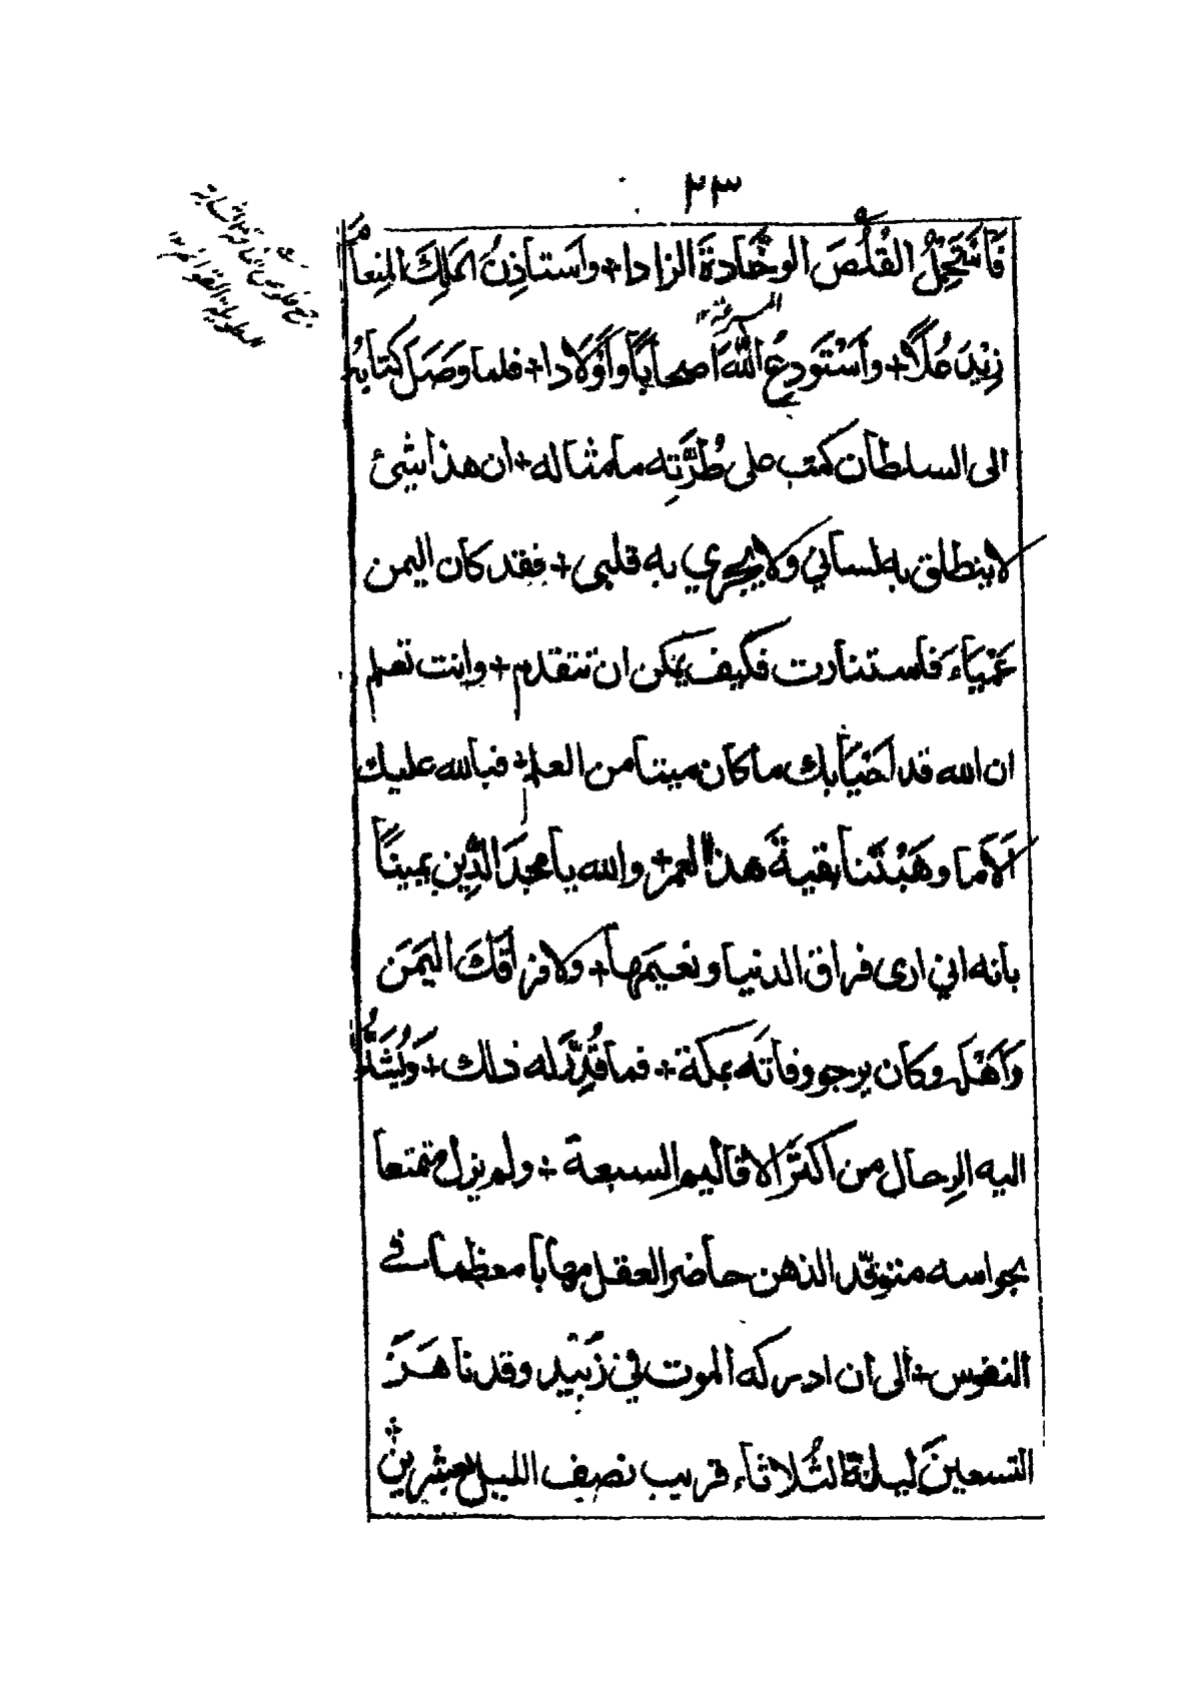 ٢٣
فَأَسْتَحْمِلُ القُلُصَ الوخَّادةَ الزادا + وأستأذِنُ المَلِكَ المِنعامَ
زِيْدَ عُلاً + وأَسْتَودِعُ اللهَ أصحاباً وأَوْلادا + فلما وصَلَ كتابُه
المسرعة
الى السلطان كتب على طُرَّتِه ما مثاله + ان هذا شئ
لا ينطلق به لساني ولا يجري به قلمي + فقد كان اليمن
عَمْيَاءَ فاستنارت فكيف يمكن ان تتقدم + وانت تعلم
ان الله قد أَحْيَا بك ما كان ميتا من العلم + فبالله عليك
اَلاَّ ما وهَبْتَنا بقيةَ هذا العمر + والله يا مجدَ الدِّين يميناً
بانه اني ارى فراق الدنيا ونعيمَها + ولا فراقَكَ اليَمَن
وَأَهْلَه وكان يرجو وفاتَه بمكة + فما قُدِّرَ له ذلك + وَيُشَدُّ
اليه الرِحال من أكثَرِ الاقاليم السبعة + ولم يزل متمتعا
بحواسه متوقِّد الذهن حاضر العقل مهابا معظما في
النفوس + الى ان ادركه الموت في زَبِيْد وقد ناهَزَ
التسعينَ ليلةَ الثُّلاثاء قريب نصف الليل لعشرين